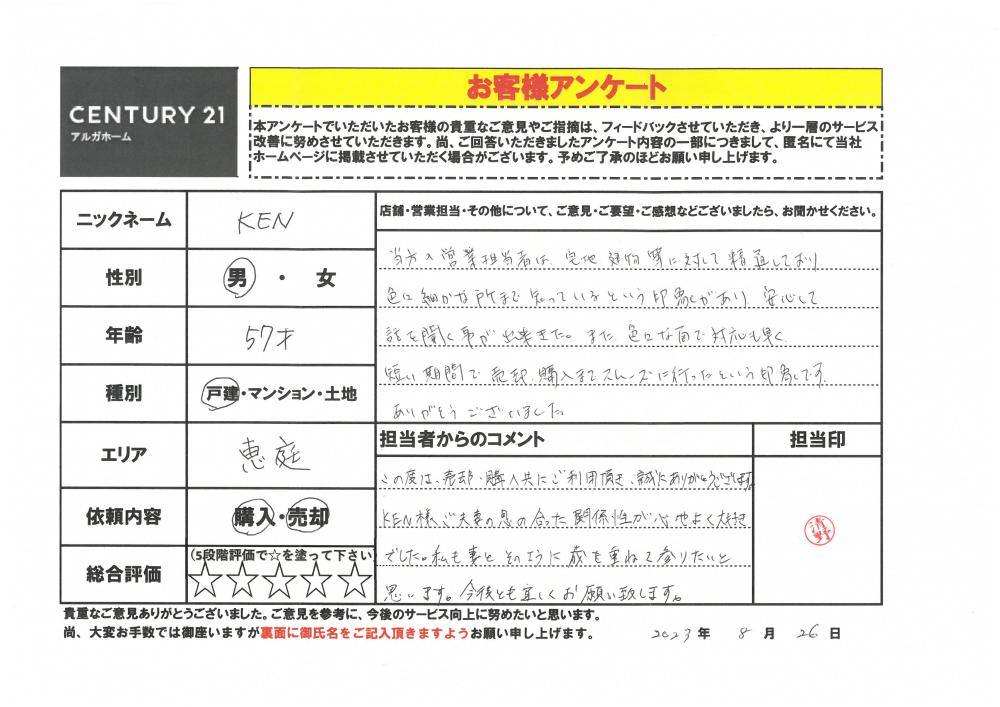 CENTURY 21
アルガホーム
お客様アンケート
本アンケートでいただいたお客様の貴重なご意見やご指摘は、フィードバックさせていただき、より一層のサービス
改善に努めさせていただきます。尚、ご回答いただきましたアンケート内容の一部につきまして、匿名にて当社
ホームページに掲載させていただく場合がございます。予めご了承のほどお願い申し上げます。
ニックネーム KEN
性別 男・女
年齢 57才
種別 戸建・マンション・土地
エリア 恵庭
依頼内容 購入・売却
総合評価 (5段階評価で☆を塗って下さい)
☆☆☆☆☆
店舗・営業担当・その他について、ご意見・ご要望・ご感想などございましたら、お聞かせください。
当方の営業担当者は、宅地 建物 等に対して 精通しており
色々細かな所まで 知っているという印象があり 安心して
話を聞く事が 出来きた。また 色々な面で 対応も早く
短い期間で 売却、購入までスムーズに行ったという印象です。
ありがとうございました
担当者からのコメント
担当印
この度は、売却・購入共にご利用頂き、誠にありがとうございます。
KEN様ご夫妻の息の合った関係性が心地よく大好き
でした。私も妻と そのように歳を重ねて参りたいと
思います。今後とも宜しくお願い致します。
清野
貴重なご意見ありがとうございました。ご意見を参考に、今後のサービス向上に努めたいと思います。
尚、大変お手数では御座いますが裏面に御氏名をご記入頂きますようお願い申し上げます。
2023 年 8 月 26 日